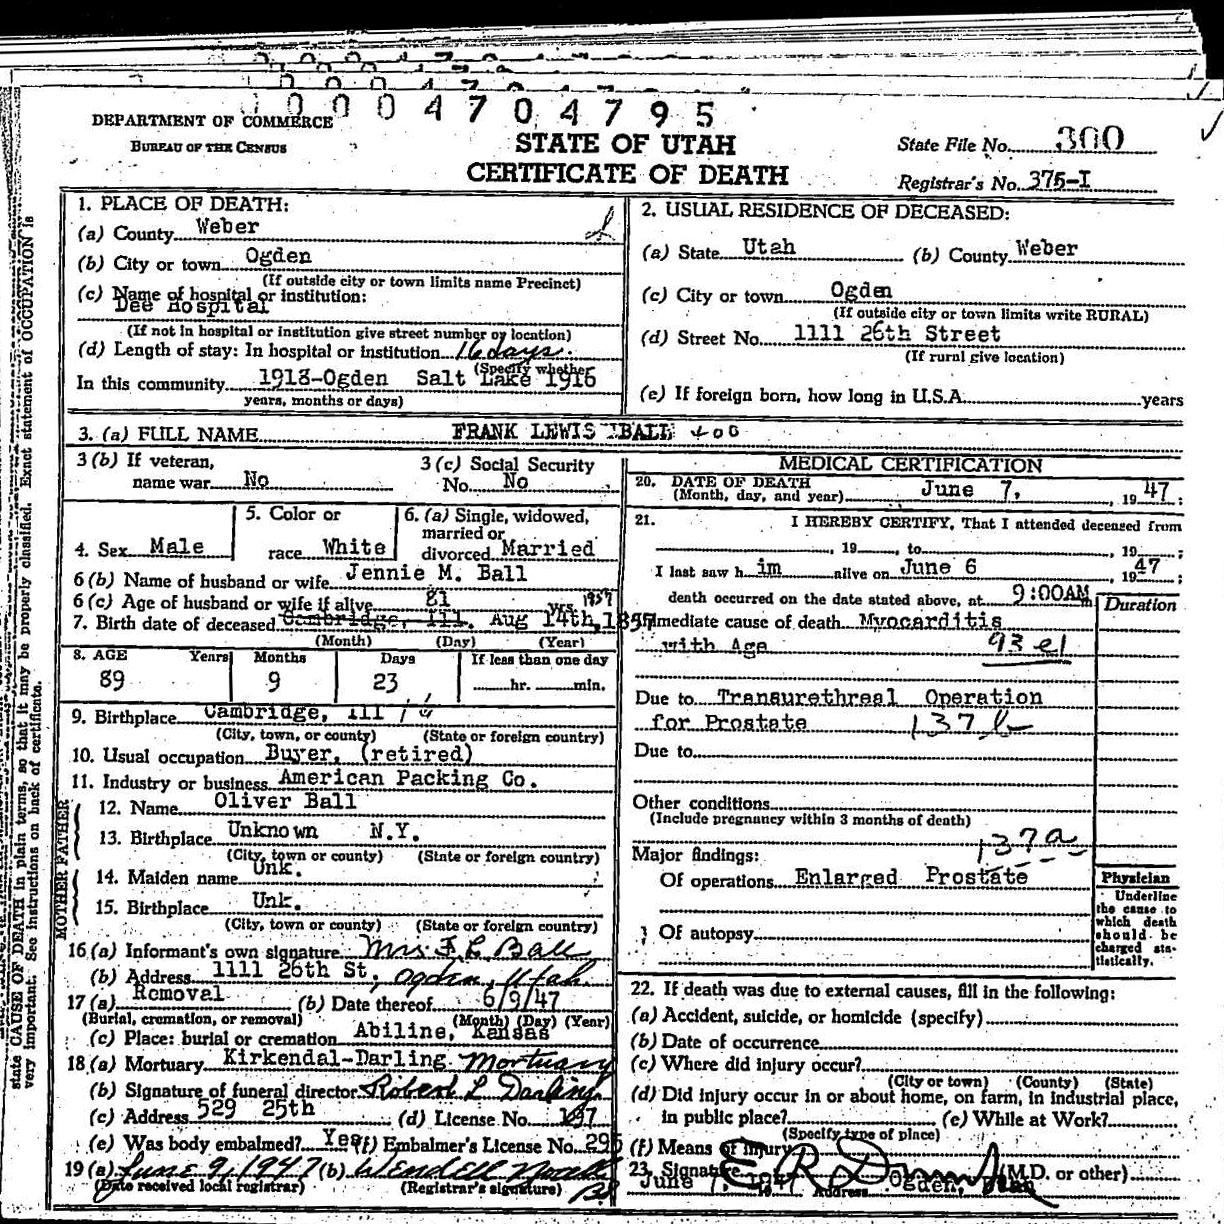 00004704795
DEPARTMENT OF COMMERCE
BUREAU OF THE CENSUS
STATE OF UTAH
CERTIFICATE OF DEATH
State File No. 300
Registrar's No. 375-I
1. PLACE OF DEATH:
(a) County Weber
(b) City or town Ogden
(If outside city or town limits name Precinct)
(c) Name of hospital or institution:
Dee Hospital
(If not in hospital or institution give street number or location)
(d) Length of stay: In hospital or institution 16 days.
(Specify whether
In this community 1918-Ogden Salt Lake 1916
years, months or days)
2. USUAL RESIDENCE OF DECEASED:
(a) State Utah (b) County Weber
(c) City or town Ogden
(If outside city or town limits write RURAL)
(d) Street No. 1111 26th Street
(If rural give location)
(e) If foreign born, how long in U.S.A. years
3. (a) FULL NAME FRANK LEWIS BALL 400
3 (b) If veteran,
name war No
3 (c) Social Security
No. No
4. Sex Male
5. Color or
race White
6. (a) Single, widowed,
married or
divorced Married
6 (b) Name of husband or wife Jennie M. Ball
6 (c) Age of husband or wife if alive 81 yrs. 1857
7. Birth date of deceased Cambridge, Ill. Aug 14th, 1857
(Month) (Day) (Year)
8. AGE Years Months Days If less than one day
89 9 23 hr. min.
9. Birthplace Cambridge, Ill
(City, town, or county) (State or foreign country)
10. Usual occupation Buyer, (retired)
11. Industry or business American Packing Co.
FATHER
12. Name Oliver Ball
13. Birthplace Unknown N.Y.
(City, town or county) (State or foreign country)
MOTHER
14. Maiden name Unk.
15. Birthplace Unk.
(City, town or county) (State or foreign country)
16 (a) Informant's own signature Mrs F L Ball
(b) Address 1111 26th St, Ogden, Utah
17 (a) Removal (b) Date thereof 6/9/47
(Burial, cremation, or removal) (Month) (Day) (Year)
(c) Place: burial or cremation Abiline, Kansas
18 (a) Mortuary Kirkendal-Darling Mortuary
(b) Signature of funeral director Robert L Darling
(c) Address 529 25th (d) License No. 197
(e) Was body embalmed? Yes (f) Embalmer's License No. 295
19 (a) June 9, 1947 (b) Wendell
(Date received local registrar) (Registrar's signature)
MEDICAL CERTIFICATION
20. DATE OF DEATH
(Month, day, and year) June 7, 1947;
21. I HEREBY CERTIFY, That I attended deceased from
, 19 , to , 19 ;
I last saw him alive on June 6 , 1947;
death occurred on the date stated above, at 9:00AM
Duration
Immediate cause of death Myocarditis
with Age 93 e1
Due to Transurethreal Operation
for Prostate 137 b
Due to
Other conditions
(Include pregnancy within 3 months of death)
137a
Major findings:
Of operations Enlarged Prostate
Of autopsy
Physician
Underline
the cause to
which death
should be
charged sta-
tistically.
22. If death was due to external causes, fill in the following:
(a) Accident, suicide, or homicide (specify)
(b) Date of occurrence
(c) Where did injury occur?
(City or town) (County) (State)
(d) Did injury occur in or about home, on farm, in industrial place,
in public place? (e) While at Work?
(Specify type of place)
(f) Means of injury
23. Signature (M.D. or other)
June 1947 Address Ogden, Utah
state CAUSE OF DEATH in plain terms, so that it may be properly classified. Exact statement of OCCUPATION is
very important. See instructions on back of certificate.